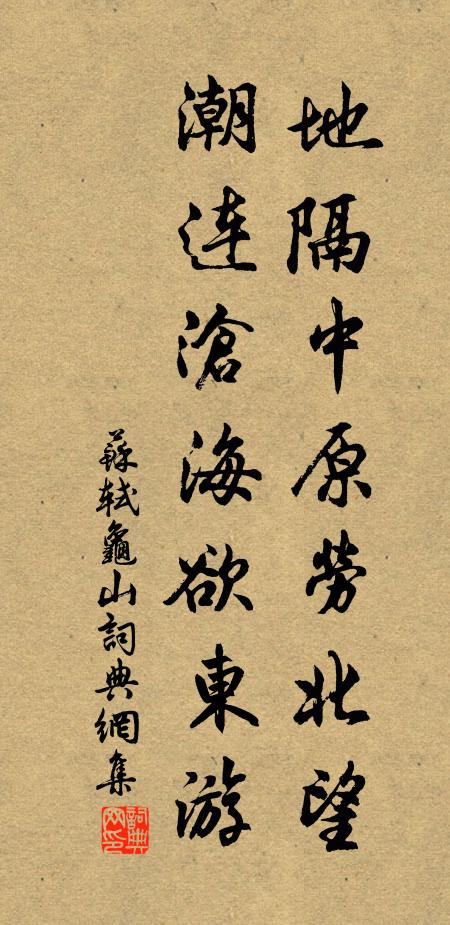 地隔中原勞北望
潮連滄海欲東游
蘇軾龜山詞典網集
詞典网印